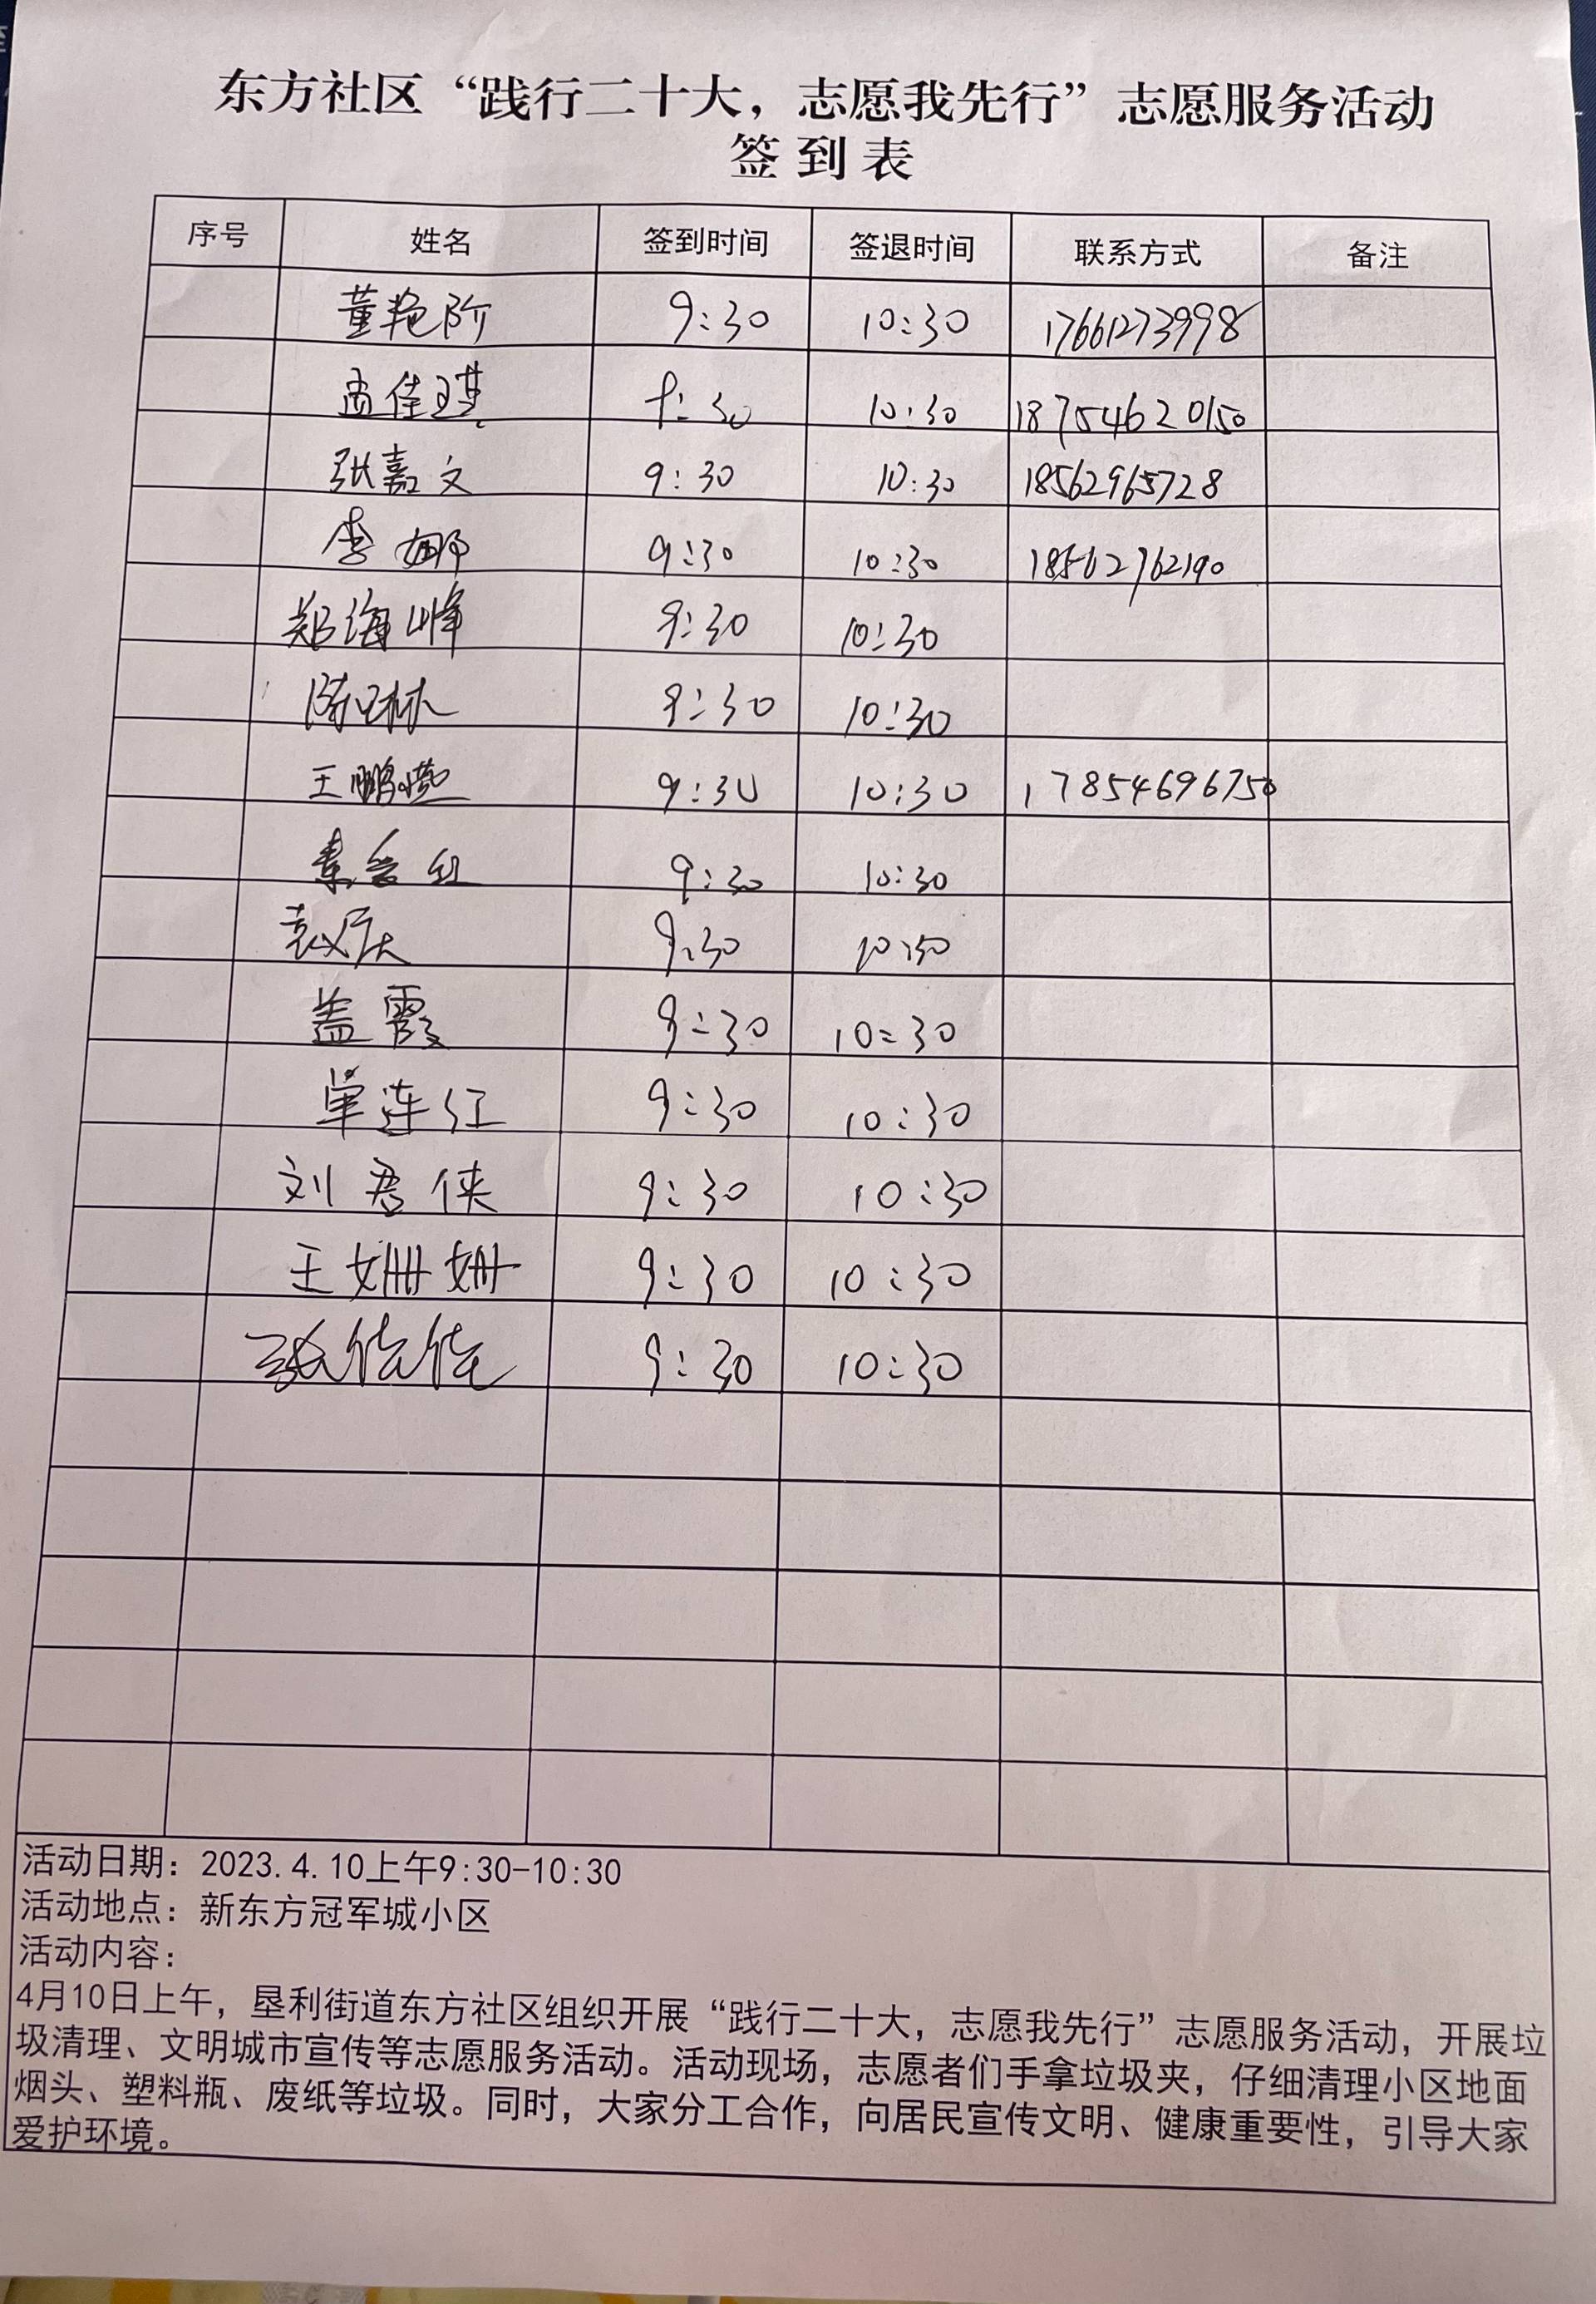 东方社区“践行二十大，志愿我先行”志愿服务活动
签到表
序号 姓名 签到时间 签退时间 联系方式 备注
董艳阶 9:30 10:30 17661273998
孟佳琪 9:30 10:30 18754620150
张嘉文 9:30 10:30 18562965728
李娜 9:30 10:30 18562762190
郑海峰 9:30 10:30
陈琳 9:30 10:30
王鹏燕 9:30 10:30 17854696750
9:30 10:30
袁庆 9:30 10:30
盖霞 9:30 10:30
单连红 9:30 10:30
刘君侠 9:30 10:30
王姗姗 9:30 10:30
张佳佳 9:30 10:30
活动日期：2023.4.10上午9:30-10:30
活动地点：新东方冠军城小区
活动内容：
4月10日上午，垦利街道东方社区组织开展“践行二十大，志愿我先行”志愿服务活动，开展垃
圾清理、文明城市宣传等志愿服务活动。活动现场，志愿者们手拿垃圾夹，仔细清理小区地面
烟头、塑料瓶、废纸等垃圾。同时，大家分工合作，向居民宣传文明、健康重要性，引导大家
爱护环境。